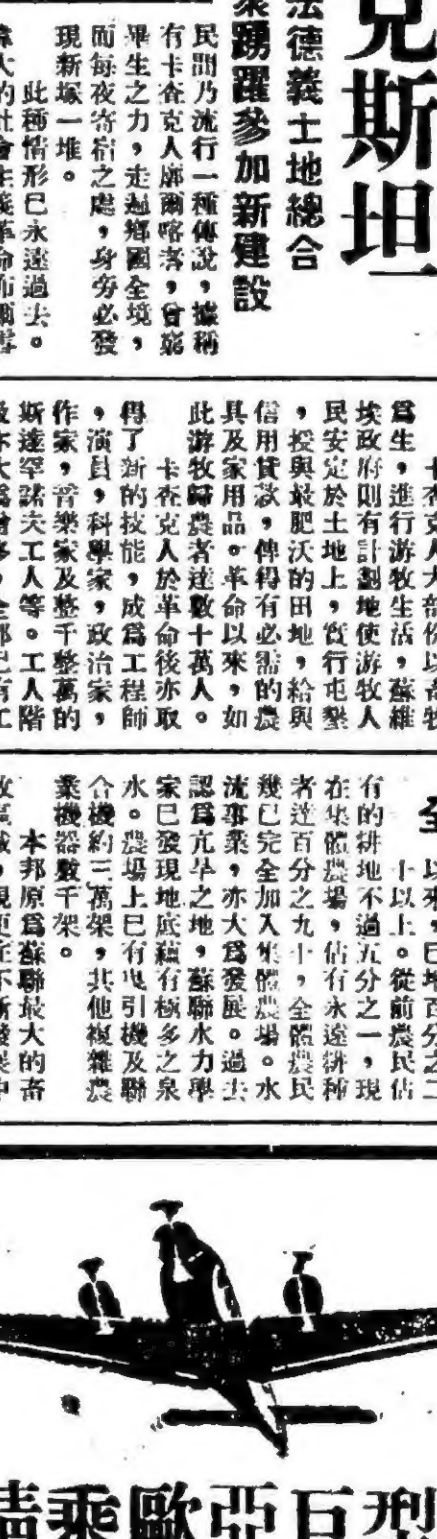 克斯坦
法德義土地總合
衆踴躍參加新建設
民間乃流行一種傳說，據稱
有卡查克人廓爾喀者，曾窮
畢生之力，走遍鄉國全境，
而每夜寄宿之處，身旁必發
現新塚一堆。
此種情形已永遠過去。
偉大的社會主義革命
卡查克人大部份以畜牧
爲生，進行游牧生活，蘇維
埃政府則有計劃地使游牧人
民安定於土地上，實行屯墾
，授與最肥沃的田地，給與
信用貸款，俾得有必需的農
具及家用品。革命以來，如
此游牧歸農者達數十萬人。
卡查克人於革命後亦取
得了新的技能，成爲工程師
，演員，科學家，政治家，
作家，音樂家及整千整萬的
斯達空諾夫工人等。工人階
級亦大爲增多，全部已有工
全
以來，已增百分之二
十以上。從前農民佔
有的耕地不過五分之一，現
在集體農場，佔有永遠耕種
者達百分之九十，全體農民
幾已完全加入集體農場。水
流事業，亦大爲發展。過去
認爲亢旱之地，蘇聯水力學
家已發現地底蘊有極多之泉
水。農場上已有曳引機及聯
合機約三萬架，其他複雜農
業機器數千架。
本邦原爲蘇聯最大的畜
牧區域，現更在不斷發展中
請乘歐亞巨型